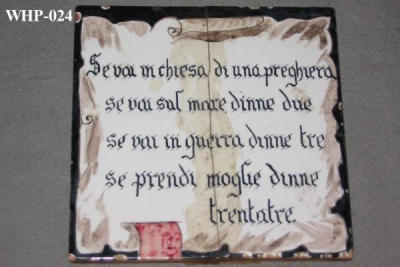 WHP-024
Se vai in chiesa di una preghiera
se vai sul mare dinne due
se vai in guerra dinne tre
se prendi moglie dinne
trentatre